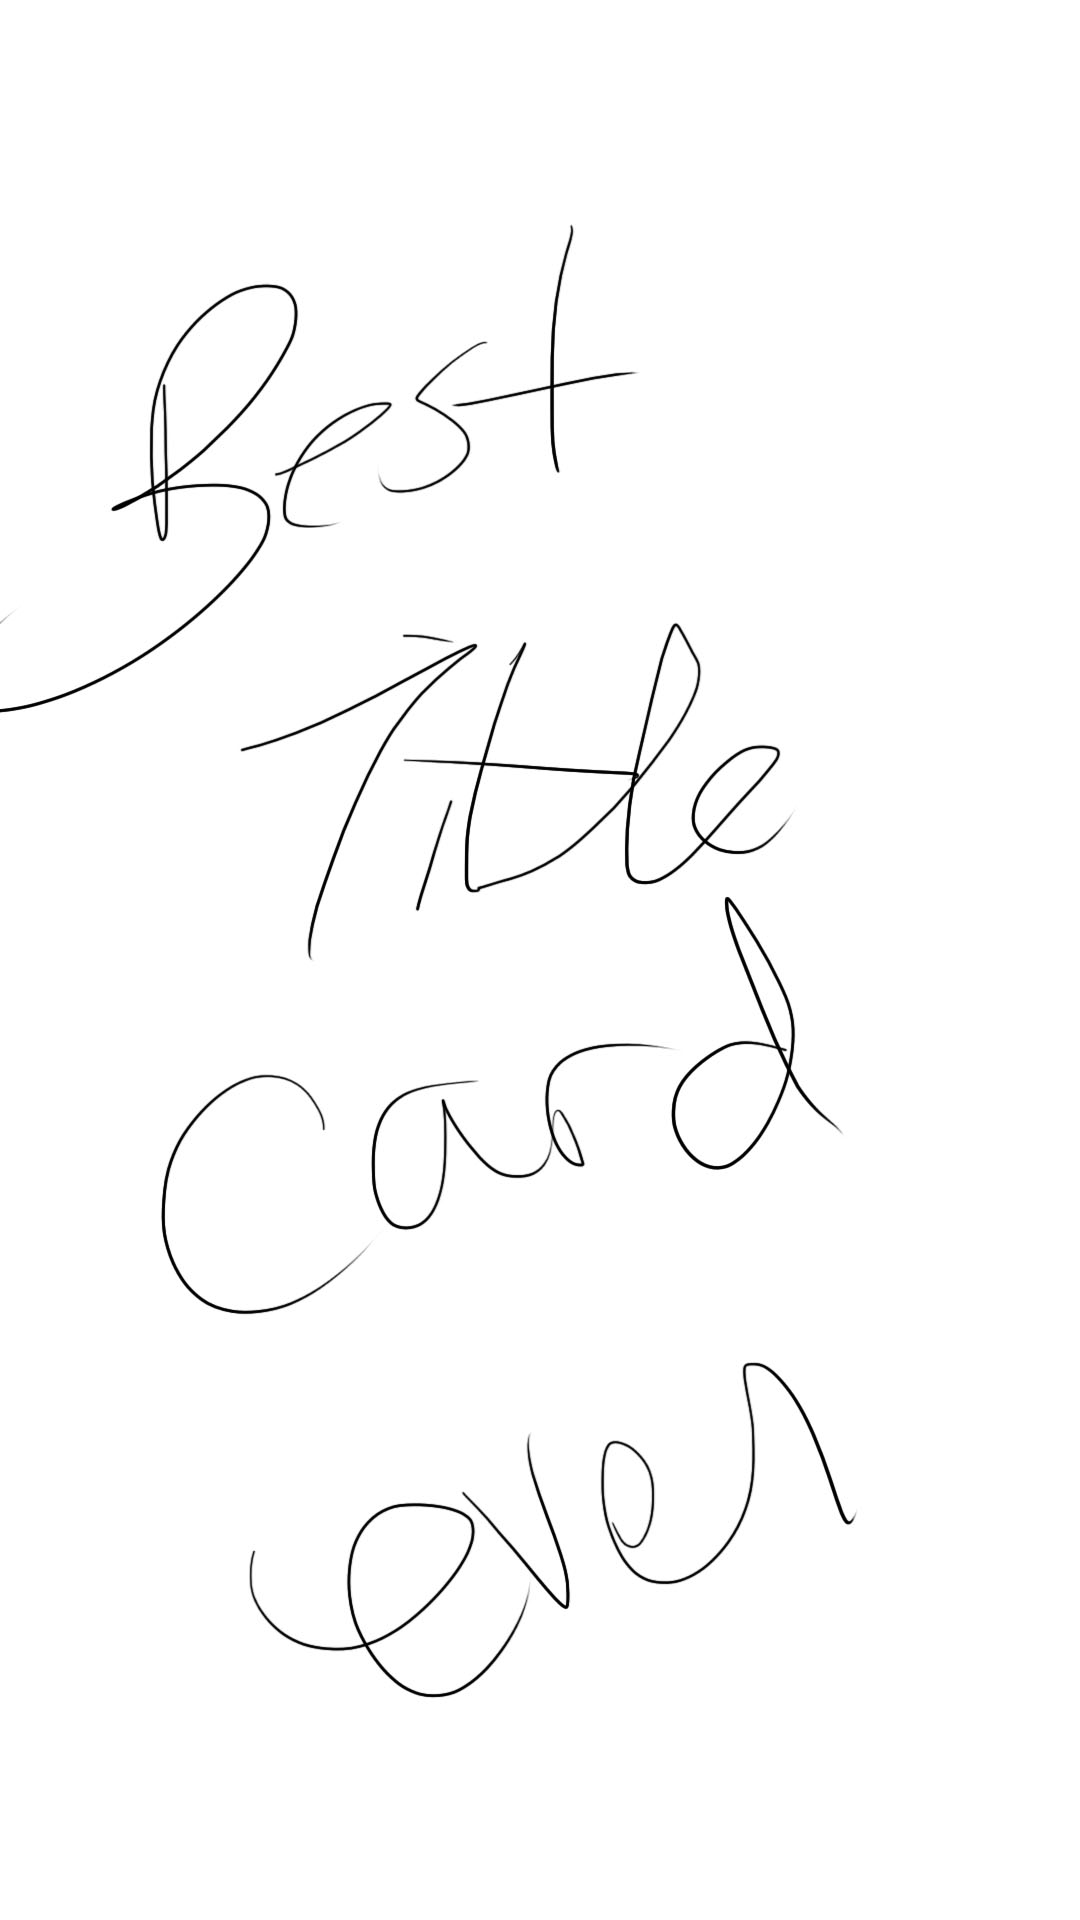 Best
Title
Card
ever